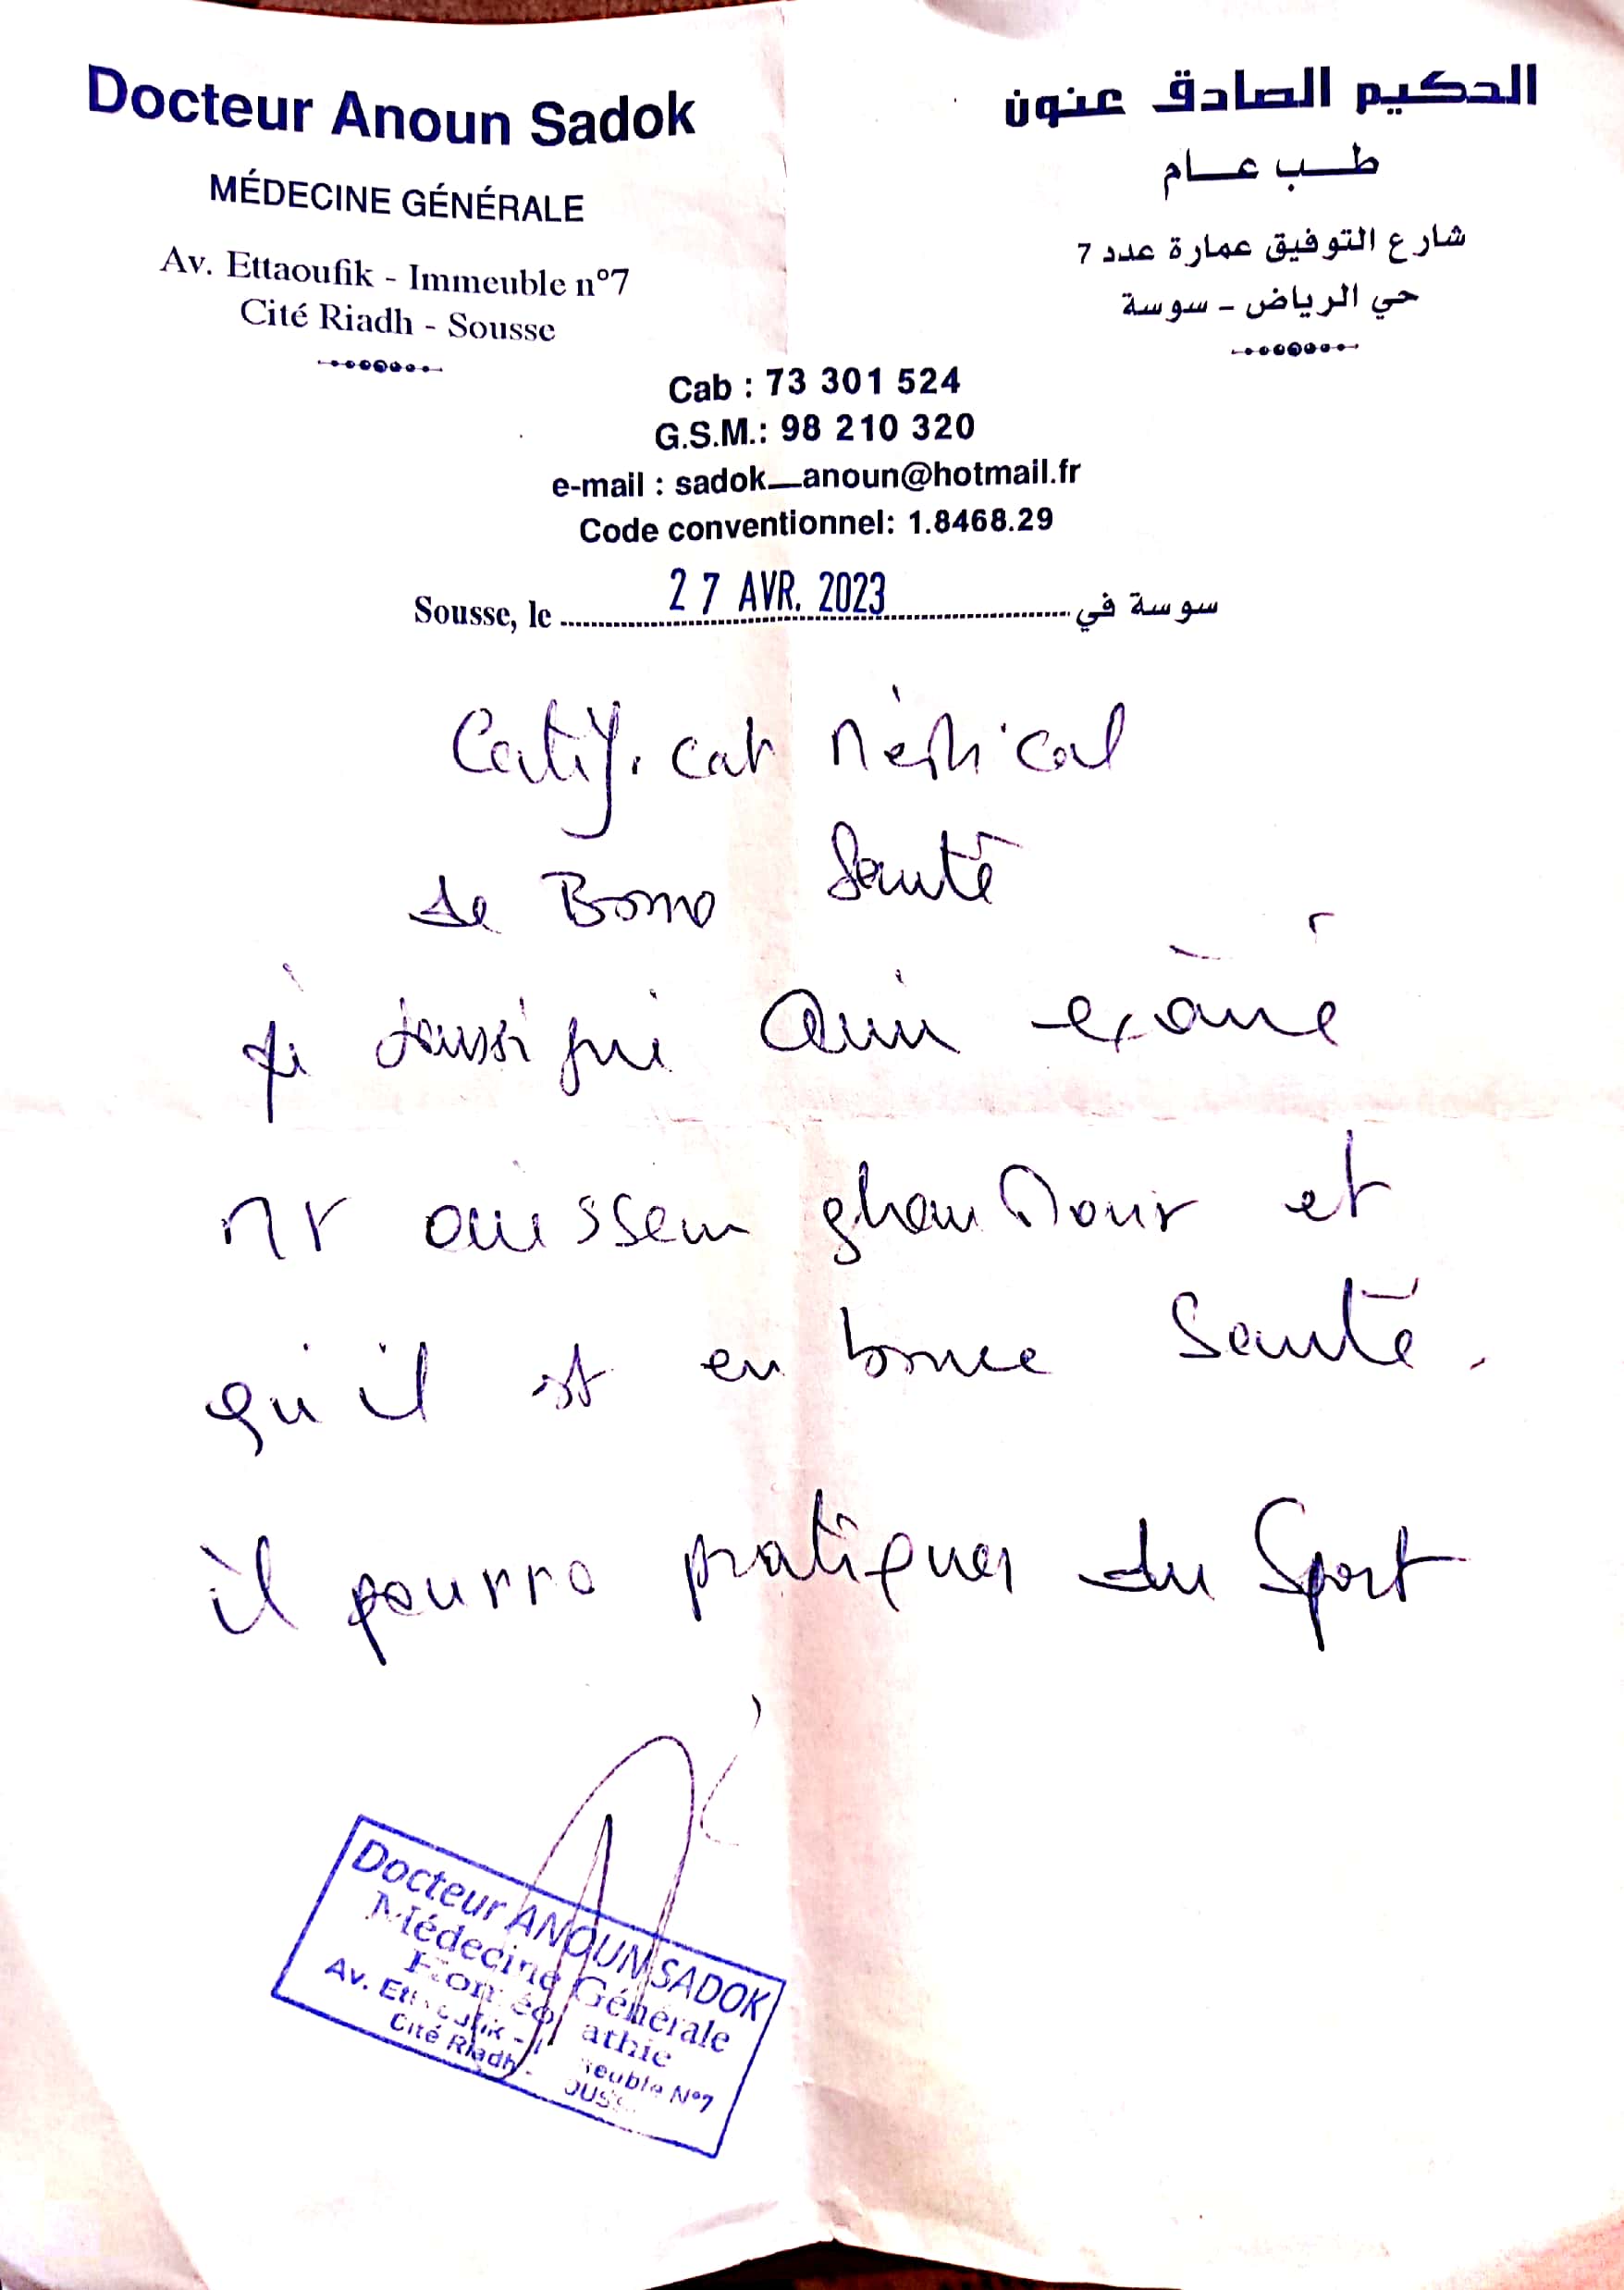 Docteur Anoun Sadok
MÉDECINE GÉNÉRALE
Av. Ettaoufik - Immeuble n°7
Cité Riadh - Sousse
الحكيم الصادق عنون
طب عام
شارع التوفيق عمارة عدد 7
حي الرياض - سوسة
Cab : 73 301 524
G.S.M.: 98 210 320
e-mail : sadok_anoun@hotmail.fr
Code conventionnel: 1.8468.29
Sousse, le 27 AVR. 2023 سوسة في
Certificat Médical
de Bonne Santé
je soussigné avoir examiné
Mr ouissem ghandour et
qu'il est en bonne santé.
il pourra pratiquer du Sport
Docteur ANOUN SADOK
Médecine Générale
Homéopathie
Av. Ettaoufik - Immeuble N°7
Cité Riadh - SOUSSE